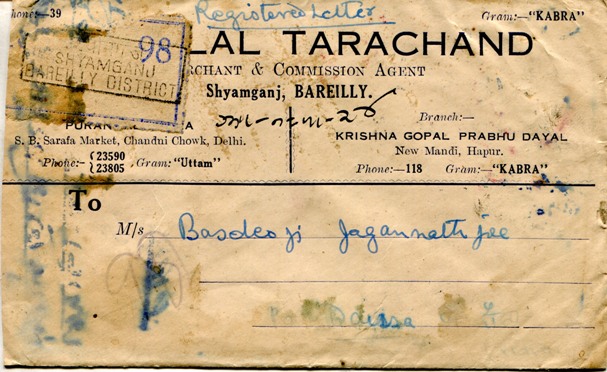 Registered Letter
Phone:—39
Gram:—"KABRA"
LAL TARACHAND
98
SHYAMGANJ
BAREILLY DISTRICT
RCHANT & COMMISSION AGENT
Shyamganj, BAREILLY.
S. B. Sarafa Market, Chandni Chowk, Delhi.
Phone:- {23590 23805 Gram: "Uttam"
Branch:—
KRISHNA GOPAL PRABHU DAYAL
New Mandi, Hapur.
Phone:—118 Gram:—"KABRA"
To
M/s Basdeo ji Jagannath jee